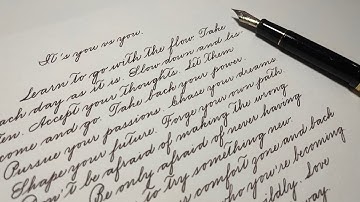 It's you vs you.
Learn to go with the flow. Take
each day as it is. Slow down and lis
ten. Accept your thoughts. Let them
come and go. Take back your power.
Pursue your passions. Chase your dreams
Shape your future. Forge your own path.
Don't be afraid of making the wrong
Be only afraid of never having
to try something new.
comfort zone and back
who you're becoming
Love
way